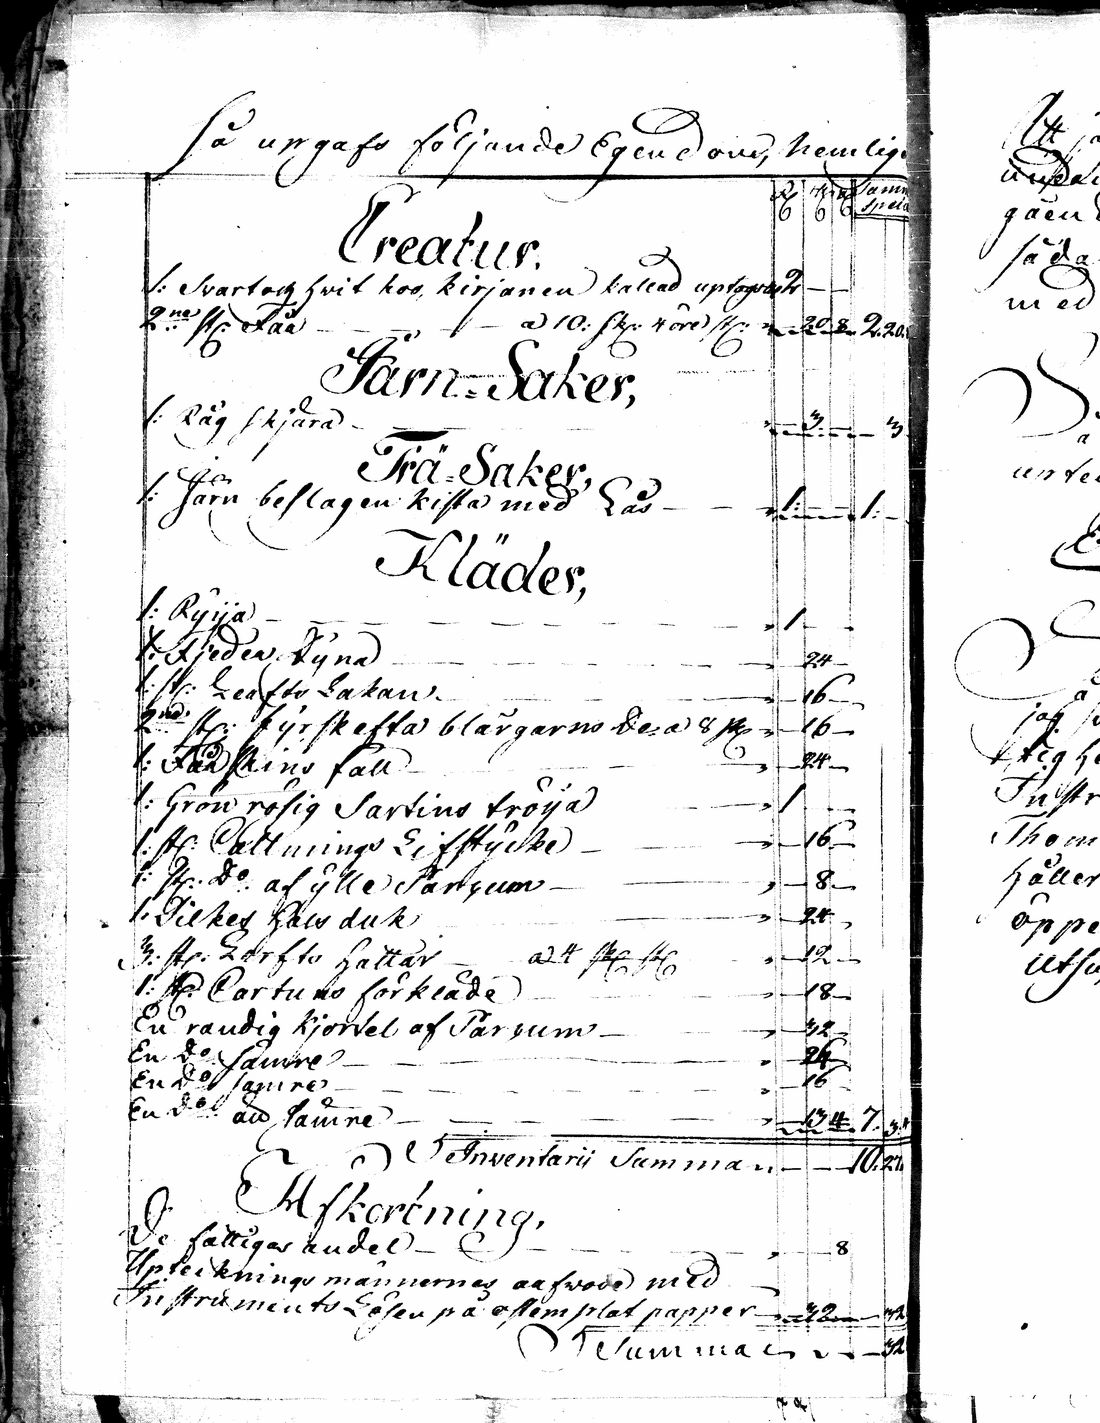 så upgafs följande Egendom, Nemlige
Creatur.
1: Svart och hvit koo, Kirjanen kallad uptogs 2
2ne st: Fåå a 10: sk: 4 öre st: 20 8 2. 20.
Järn-Saker,
1: Råg skjära 3 3
Trä-Saker,
1: Järn beslagen kista med Lås 1: 1:
Kläder,
1: Ryija 1
1: Fjeder Dyna 24
1: st: Lerfts Lakan 16
2ne st: fyrskefta blårgarns De: a 8 sk 16
1: Fåå skins fäll 24
1: Grön rosig Sartins tröija 1
1: st: Cattunings Lifstycke 16
1: st: Do af ylle Targum 8
1: Silkes Hals duk 24
3: st: Lerfts Hattar a 4 sk: st: 12
1: st: Cartuns förkläde 18
En randig Kjortel af Targum 32
En Do sämre 24
En Do sämre 16
En Do än sämre 13 4 7.
Inventarii Summa 10. 27.
Afkortning,
De fattigas andel 8
Upteknings männernes med
Instruments Lösen på stemplat papper 32 32
Summa 32
Att
gåen
såda
med
a
jag
Instr
Thom
Håller
öppe